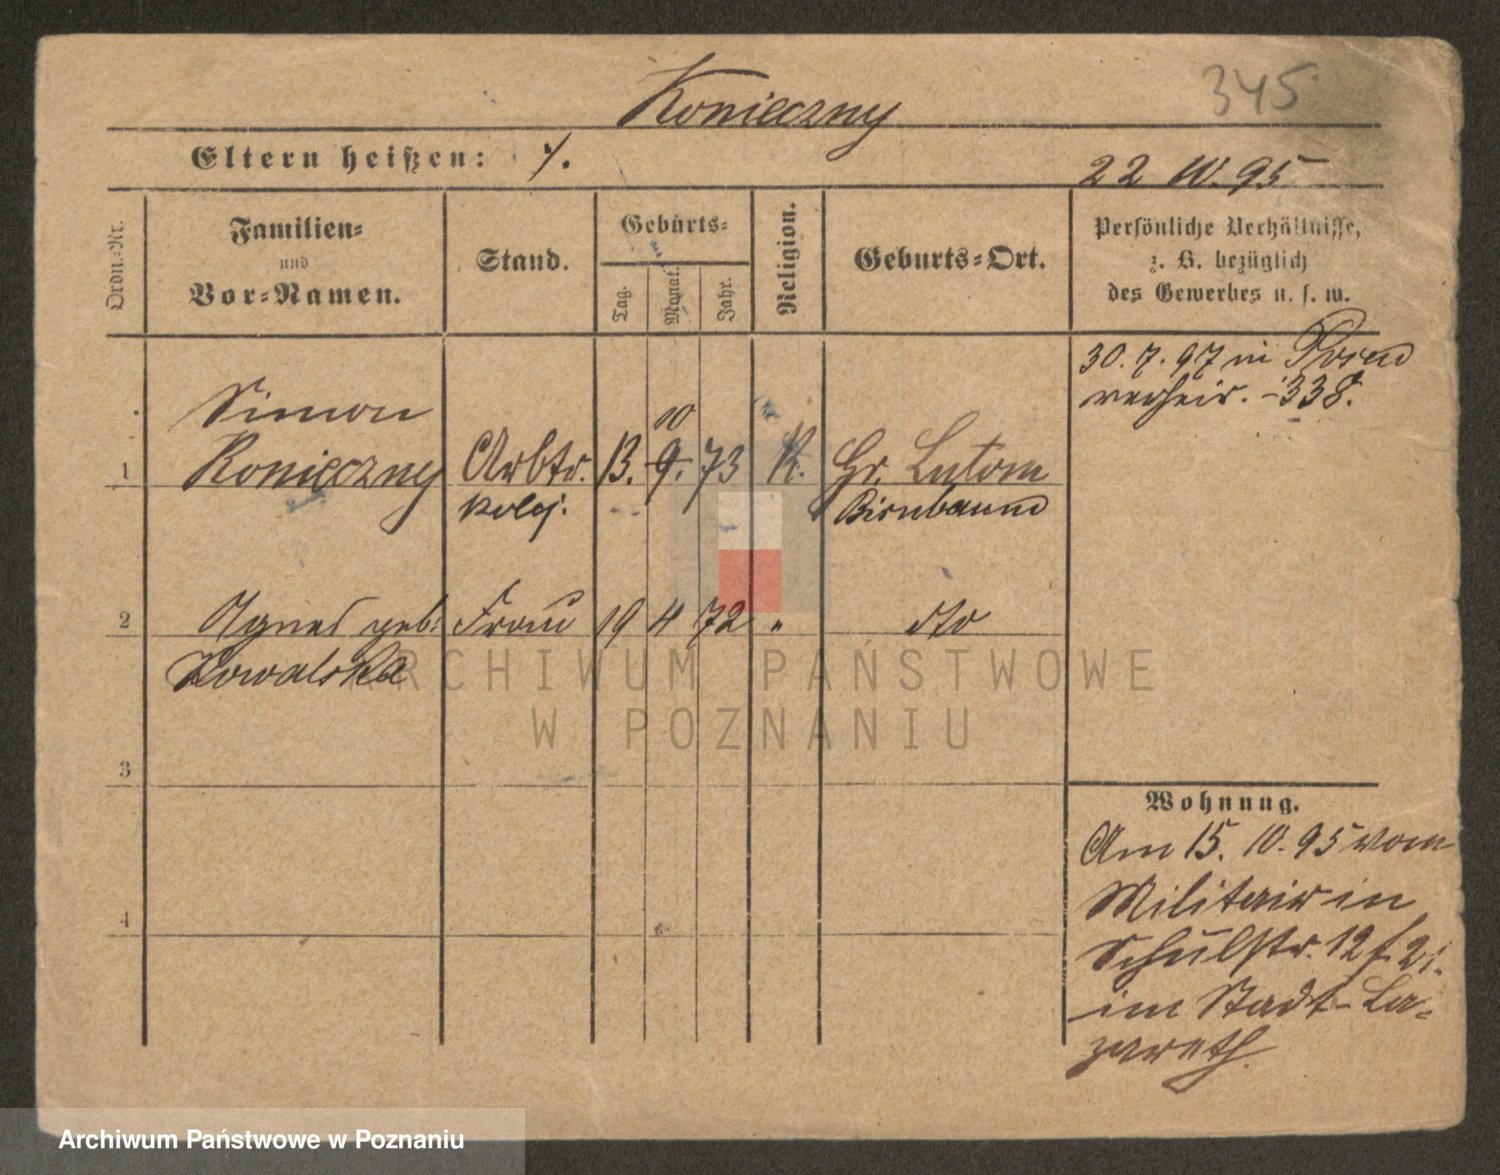 Konieczny
345
Eltern heißen: ./.
22 10. 95
Ordn.-Nr.
Familien-
und
Vor-Namen.
Stand.
Geburts-
Tag.
Monat.
Jahr.
Religion.
Geburts-Ort.
Persönliche Verhältnisse,
z. B. bezüglich
des Gewerbes u. s. w.
30. 7. 97 in Posen
verheir. - 338.
Simon
10
1 Konieczny Arbtr. 13. 9. 73 K. Gr. Lutom
Birnbaum
2 Agnes geb. Frau 19 4 72 " dto
Kowalska
3
4
Wohnung.
Am 15. 10. 95 vom
Militair in
Schulstr. 12
im Stadt-La-
zareth.
ARCHIWUM PAŃSTWOWE
W POZNANIU
Archiwum Państwowe w Poznaniu